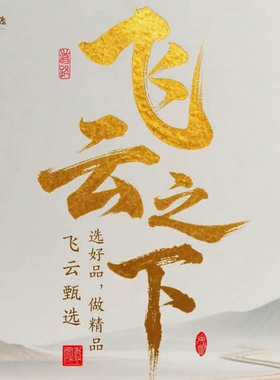 飞云之下
选好品，做精品
飞云甄选
选